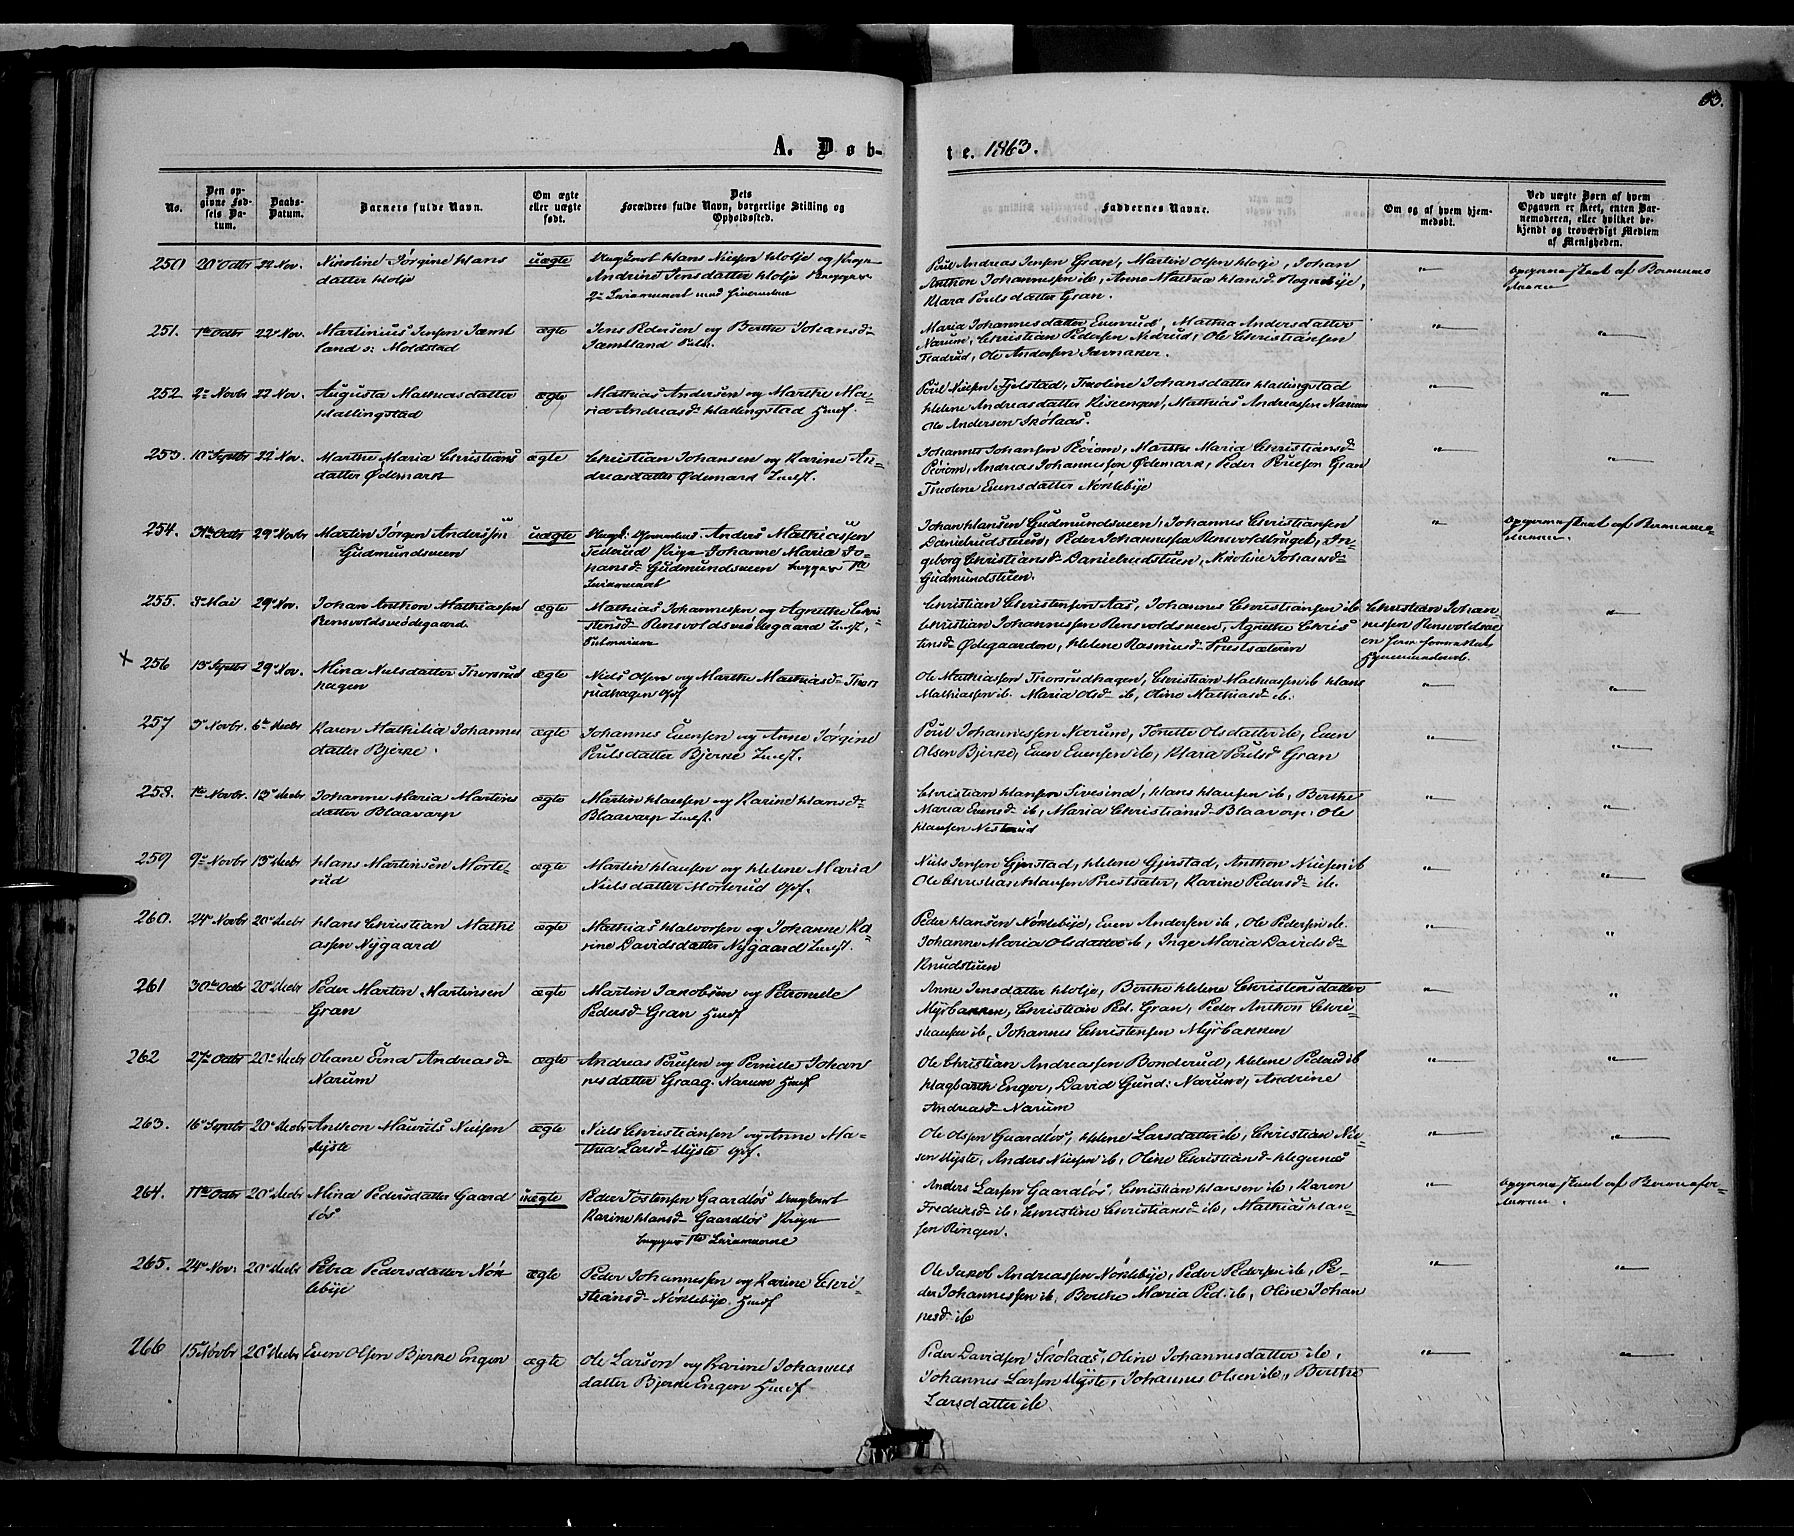 63.
A. Døb-
te. 1863.
No.
Den op-
givne Fød-
sels Da-
tum.
Daabs-
Datum.
Barnets fulde Navn.
Om ægte
eller uægte
født.
Dets
Forældres fulde Navn, borgerlige Stilling og
Opholdsted.
Faddernes Navne.
Om og af hvem hjem-
medøbt.
Ved uægte Børn af hvem
Opgaven er skeet, enten Bar-
nemoderen, eller hvilket be-
kjendt og troværdigt Medlem
af Menigheden.
250 20 Octbr 22 Nov. Nicoline Jørgine Hans
datter Holje
uægte
Ungkarl Hans Nielsen Holje og Pige
Andrine Jensdatter Holje Begges
2det Leiermaal med hverandre
Poul Andreas Jensen Gran, Martin Olsen Holje, Johan
Anthon Johannessen ib, Anne Mathea Hansd. Rognebye,
Klara Poulsdatter Gran.
251. 1te Octbr 22 Nov. Martinius Jensen Jæmt
land s: Moldstad
ægte
Jens Pedersen og Berthe Johansd-
Jæmtland
Maria Johannesdatter Evenrud, Mathia Andersdatter
Narum, Christian Pedersen Nedrud, Ole Christiansen
Ole Andersen Jævnaker.
252. 2 Novbr 22 Nov. Augusta Mathiasdatter
Hallingstad
ægte
Mathias Andersen og Marthe Ma-
ria Andreasd. Hallingstad Husf.
Poul Nielsen Fjelstad, Theoline Johansdatter Hallingstad
Helene Andreasdatter Risengen, Mathias Andreassen Narum
Ole Andersen Skölaas.
253. 10 Septbr 22 Nov. Marthe Maria Christians
datter Ødemark
ægte
Christian Johansen og Karine An-
dreasdatter Ødemark Indst.
Johannes Johansen, Marthe Maria Christiansd
Andreas Johannessen Ødemark, Peder Poulson Gran
Theoline Evensdatter Nøklebye
254. 31te Octbr 29 Novbr Martin Jørgen Anderssen
Gudmundsveen
uægte
Anders Mathiassen
Pige Johanne Maria Jo-
hansd. Gudmundsveen begges 1te
Leiermaal
Johan Hansen Gudmundsveen, Johannes Christiansen
Danielrudstuen, Peder Johannessen Rensvoldbruget, In-
geborg Christiansd- Danielrudstuen, Nicoline Johansd-
Gudmundstuen.
255. 8 Mai 29 Nov. Johan Anthon Mathiassen
Rensvoldsveødegaard
ægte
Mathias Johannessen og Agnethe Chri
stensd- Rensvoldsveødegaard Indst.
Christian Christensen Aas, Johannes Christiansen ib
Christian Johannessen Rensvoldsveen, Agnethe Chris
tensd- Ødegaarden, Helene Rasmusd- Præstsæteren
Christian Johan-
nessen Rensvoldsve
en
x 256 13 Septbr 29 Nov. Mina Nielsdatter Thorsrud
hagen
ægte
Niels Olsen og Marthe Mathiasd- Thors
rudhagen Opf
Ole Mathiassen Thorsrudhagen, Christian Mathiassen ib Hans
Mathiassen ib. Maria Olsd- ib, Oline Mathiasd- ib.
257 3 Novbr 6te Decbr Karen Mathilia Johannes
datter Bjerke.
ægte
Johannes Evensen og Anne Jørgine
Poulsdatter Bjerke Indst.
Poul Johannessen Narum, Torette Olsdatter ib, Even
Olsen Bjerke, Even Evensen ib, Klara Poulsd Gran
258. 1te Novbr. 13 Decbr Johanne Maria Martins
datter Blaavarp
ægte
Martin Hansen og Karine Hansd-
Blaavarp Indst.
Christian Hansen Sivesind, Hans Hansen ib, Berthe
Maria Evensd- ib, Maria Christiansd- Blaavarp, Ole
Hansen Nestrud
259 9 Novbr 13 Decbr Hans Martinsen Morte-
rud
ægte
Martin Hansen og Helene Maria
Nielsdatter Morterud Opf.
Niels Jensen Gjerstad, Helene Gjerstad, Anthon Nielsen ib
Ole Christian Hansen Præstsæter, Karine Pedersd- ib.
260. 24 Novbr 20 Decbr Hans Christian Mathi
assen Nygaard
ægte
Mathias Halvorsen og Johanne Ka-
rine Davidsdatter Nygaard Indst.
Peder Hansen Nøklebye, Even Andersen ib, Ole Pedersen ib.
Johanne Maria Olsdatter ib, Inge Maria Davidsd-
Knudstuen
261 30 Octbr 20 Decbr Peder Martin Martinsen
Gran
ægte
Martin Jakobsen og Petronele
Pedersd- Gran Husf
Anne Jensdatter Holje, Berthe Helene Christensdatter
Myrbakken, Christian Ped. Gran, Peder Anthon Chri-
stiansen ib, Johannes Christensen Myrbakken
262 27 Octbr 20 Decbr Oleane Eina Andreasd-
Narum
ægte
Andreas Poulsen og Pernille Johan
nesdatter Graag. Narum Husf
Ole Christian Andreassen Bonderud, Helene Pedersd ib
Hagbarth Enger, David Gund: Narum, Andrine
Andreasd- Narum
263. 16 Septbr 20 Decbr Anthon Mauritz Nielsen
Hyste
ægte
Niels Christiansen og Anne Ma-
thea Larsd- Hyste Opf.
Ole Olsen Gaardløs, Helene Larsdatter ib, Christian Niel-
sen Hyste, Anders Nielsen ib, Oline Christiansd- Hegernæs
264. 11te Octbr 20 Decbr Mina Pedersdatter Gaard
løs
uægte
Peder Torstensen Gaardløs Ungkarl
Karine Hansd- Gaardløs Pige
begges 1te Leiermaal
Anders Larsen Gaardløs, Christian Hansen ib, Karen
Fredriksd- ib, Christine Christiansd- ib, Mathias Han-
sen Ringen.
265. 24 Nov. 20 Decbr Petra Pedersdatter Nøk
lebye
ægte
Peder Johannessen og Karine Chri-
stiansd- Nøklebye. Husf
Ole Jakob Andreassen Nøklebye, Peder Pedersen ib, Pe-
der Johannessen ib, Berthe Maria Ped. ib, Oline Johan
nesd- ib
266 15 Novbr 20 Decbr Even Olsen Bjerke Engen
ægte
Ole Larsen og Karine Johannes
datter Bjerke Engen Husf.
Peder Davidsen Skölaas, Oline Johannesdatter ib.
Johannes Larsen Hyste, Johannes Olsen ib, Berthe
Larsdatter ib.